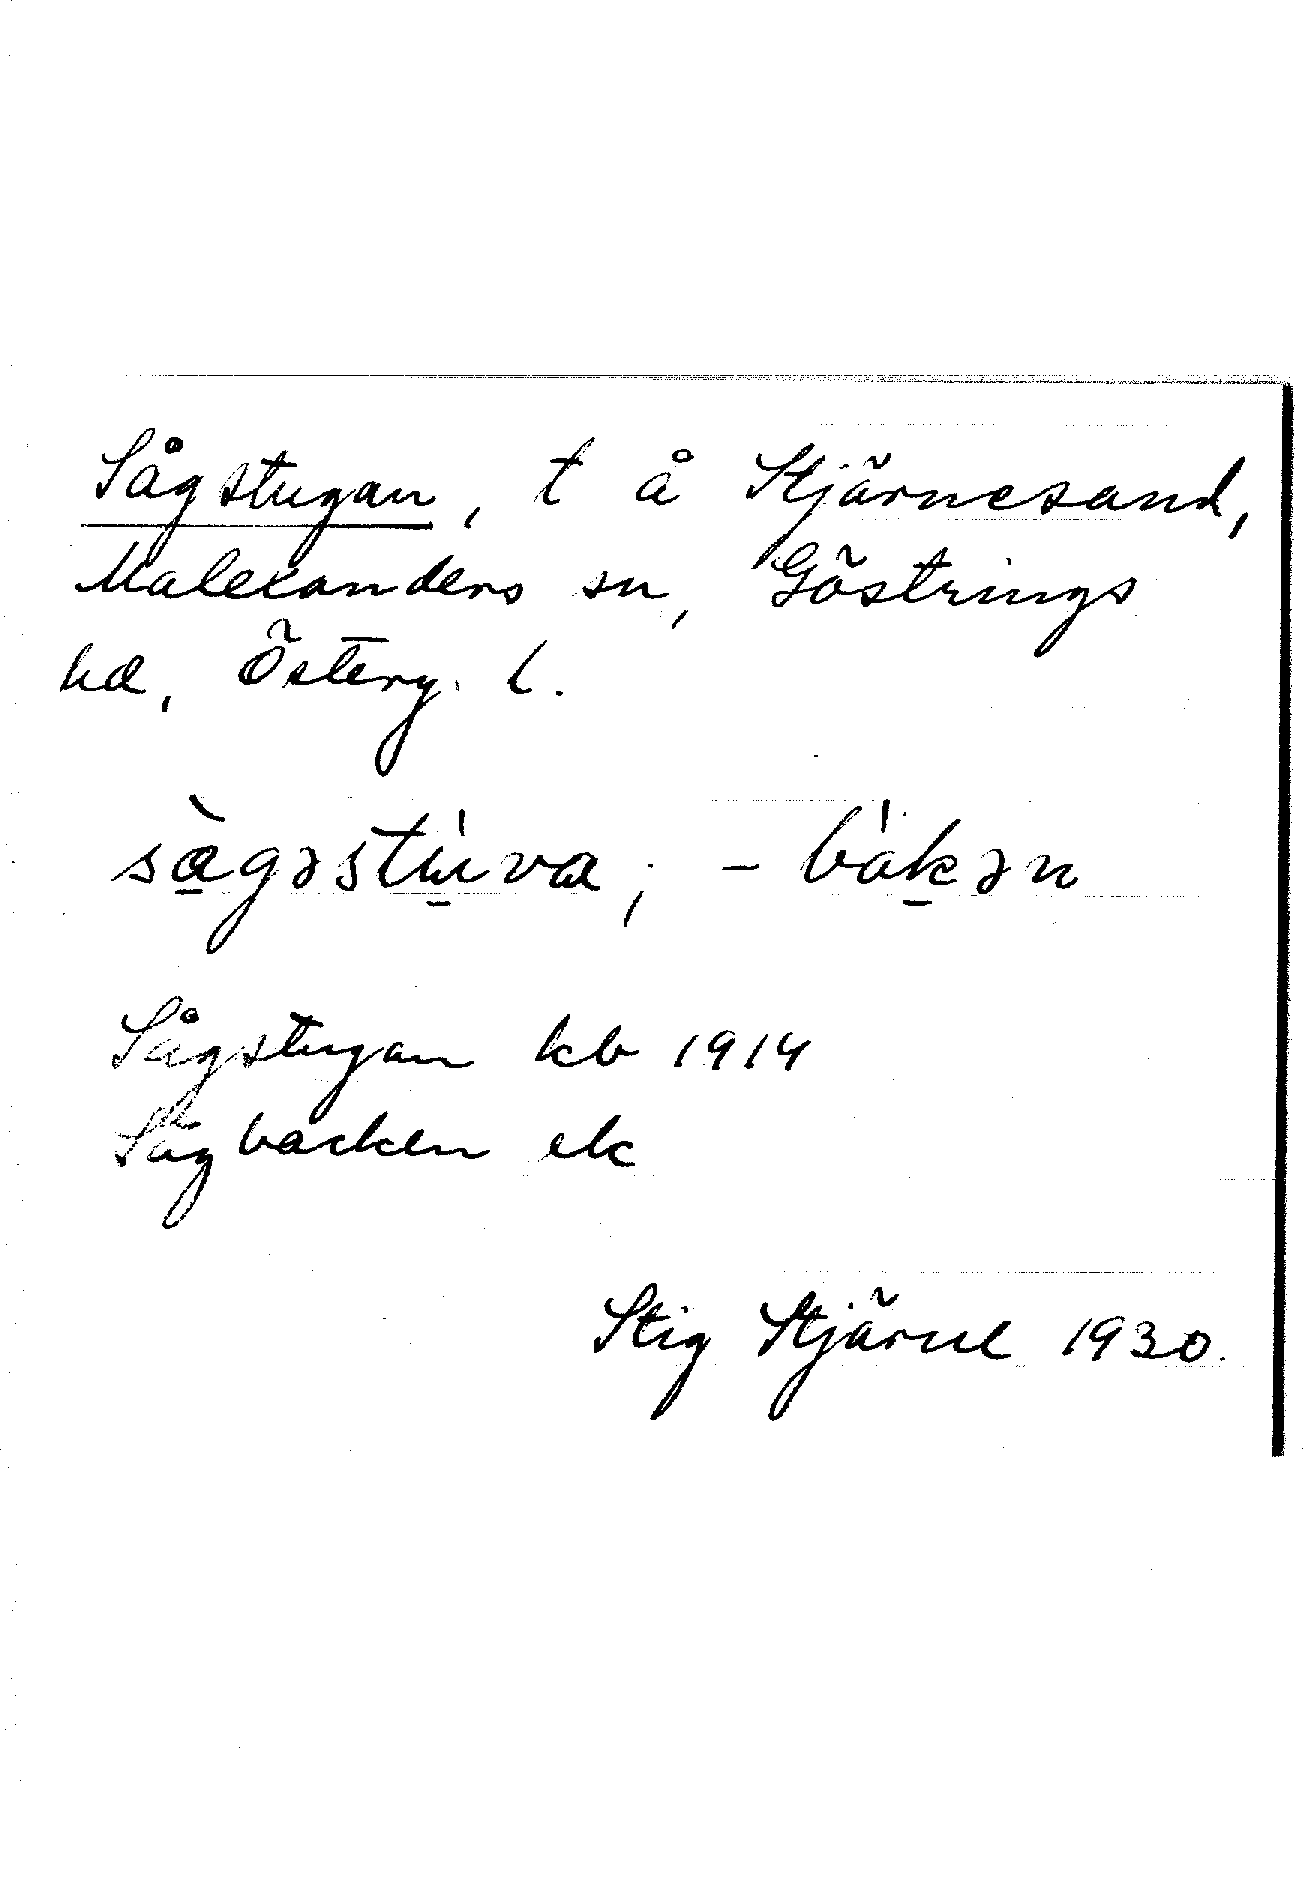 Sågstugan, t å Stjärnesand,
Malexanders sn, Göstrings
hd, Österg. l.
sàgəstùva, - bàkən
Sågstugan kb 1914
Sågbacken ek
Stig Stjärne 1930.